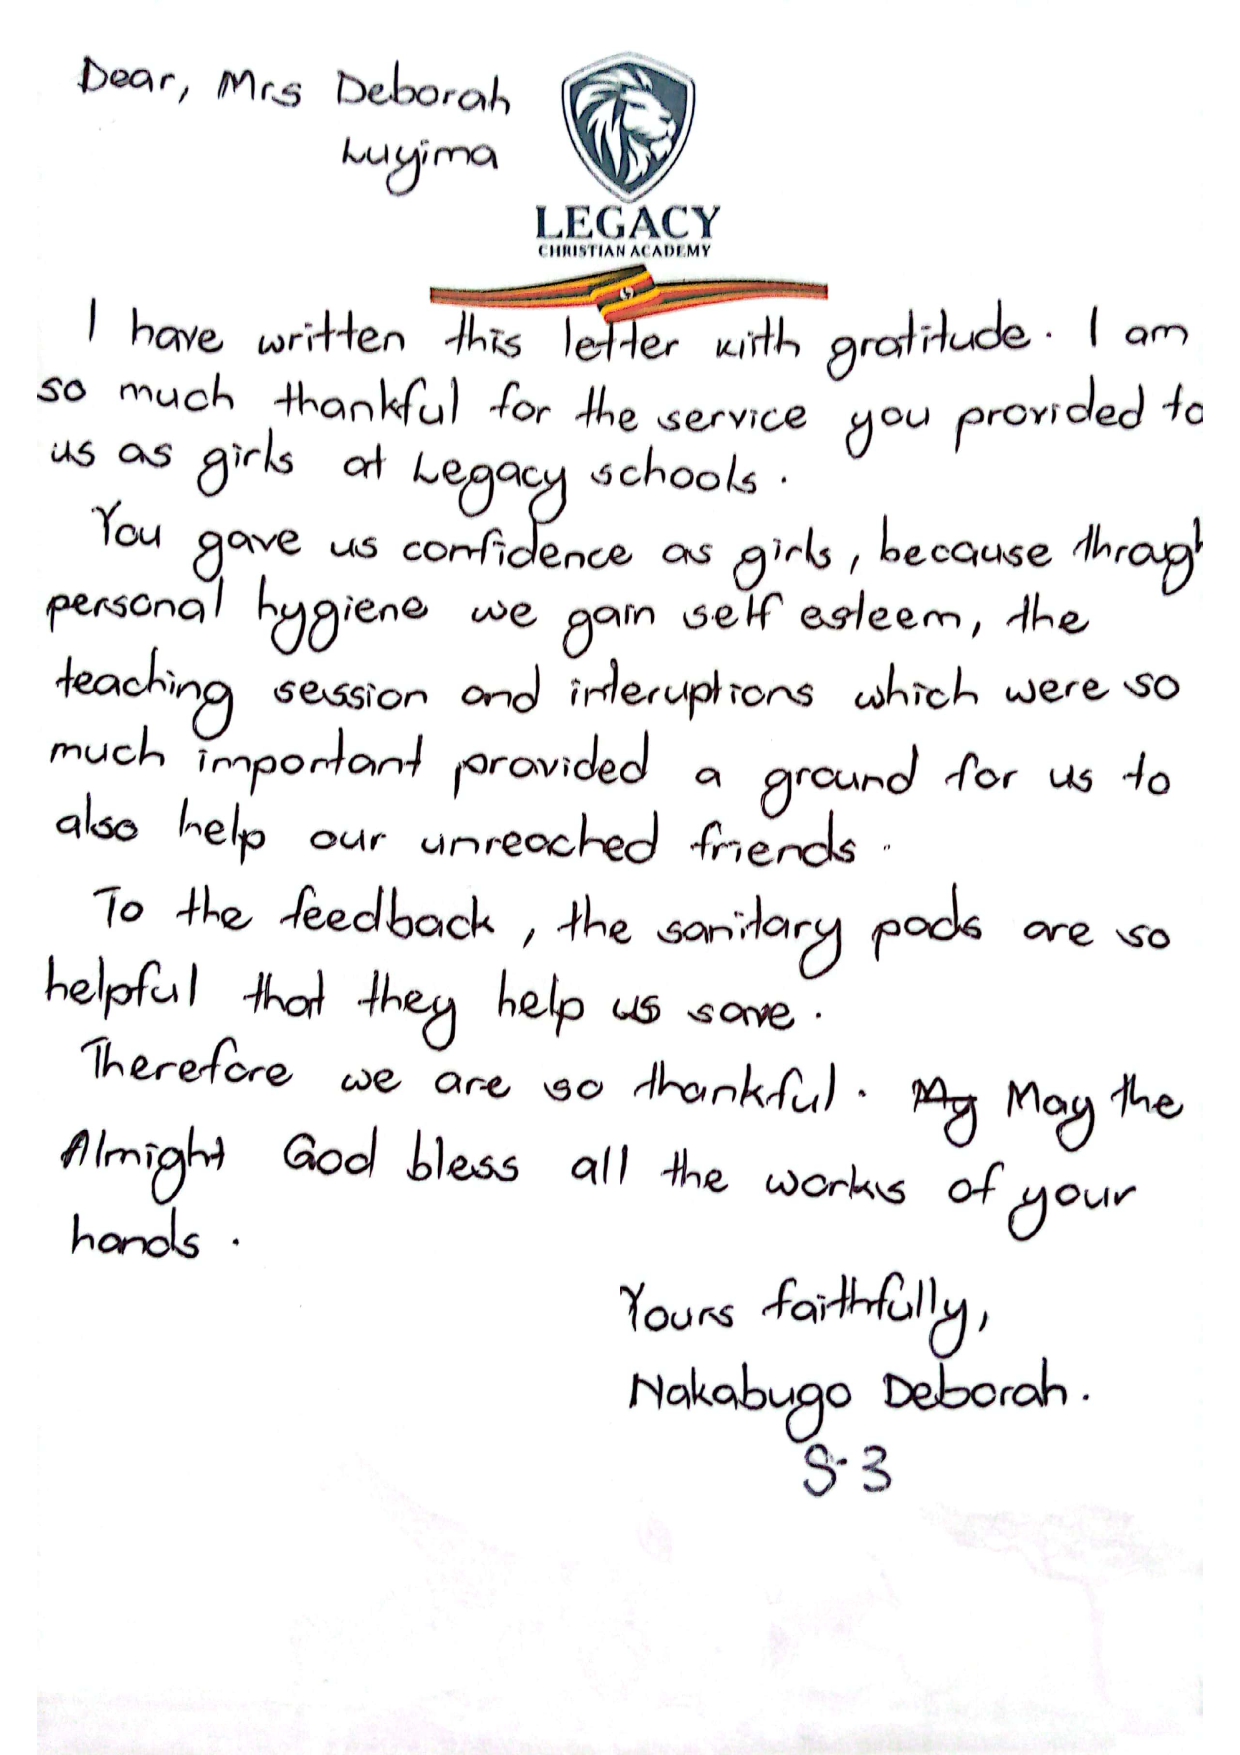 Dear, Mrs Deborah
Luyima
LEGACY
CHRISTIAN ACADEMY
I have written this letter with gratitude. I am
so much thankful for the service you provided to
us as girls at Legacy schools.
You gave us confidence as girls, because throug
personal hygiene we gain self esteem, the
teaching session and interuptions which were so
much important provided a ground for us to
also help our unreached friends.
To the feedback, the sanitary pads are so
helpful that they help us save.
Therefore we are so thankful. My May the
Almight God bless all the works of your
hands.
Yours faithfully,
Nakabugo Deborah.
S.3